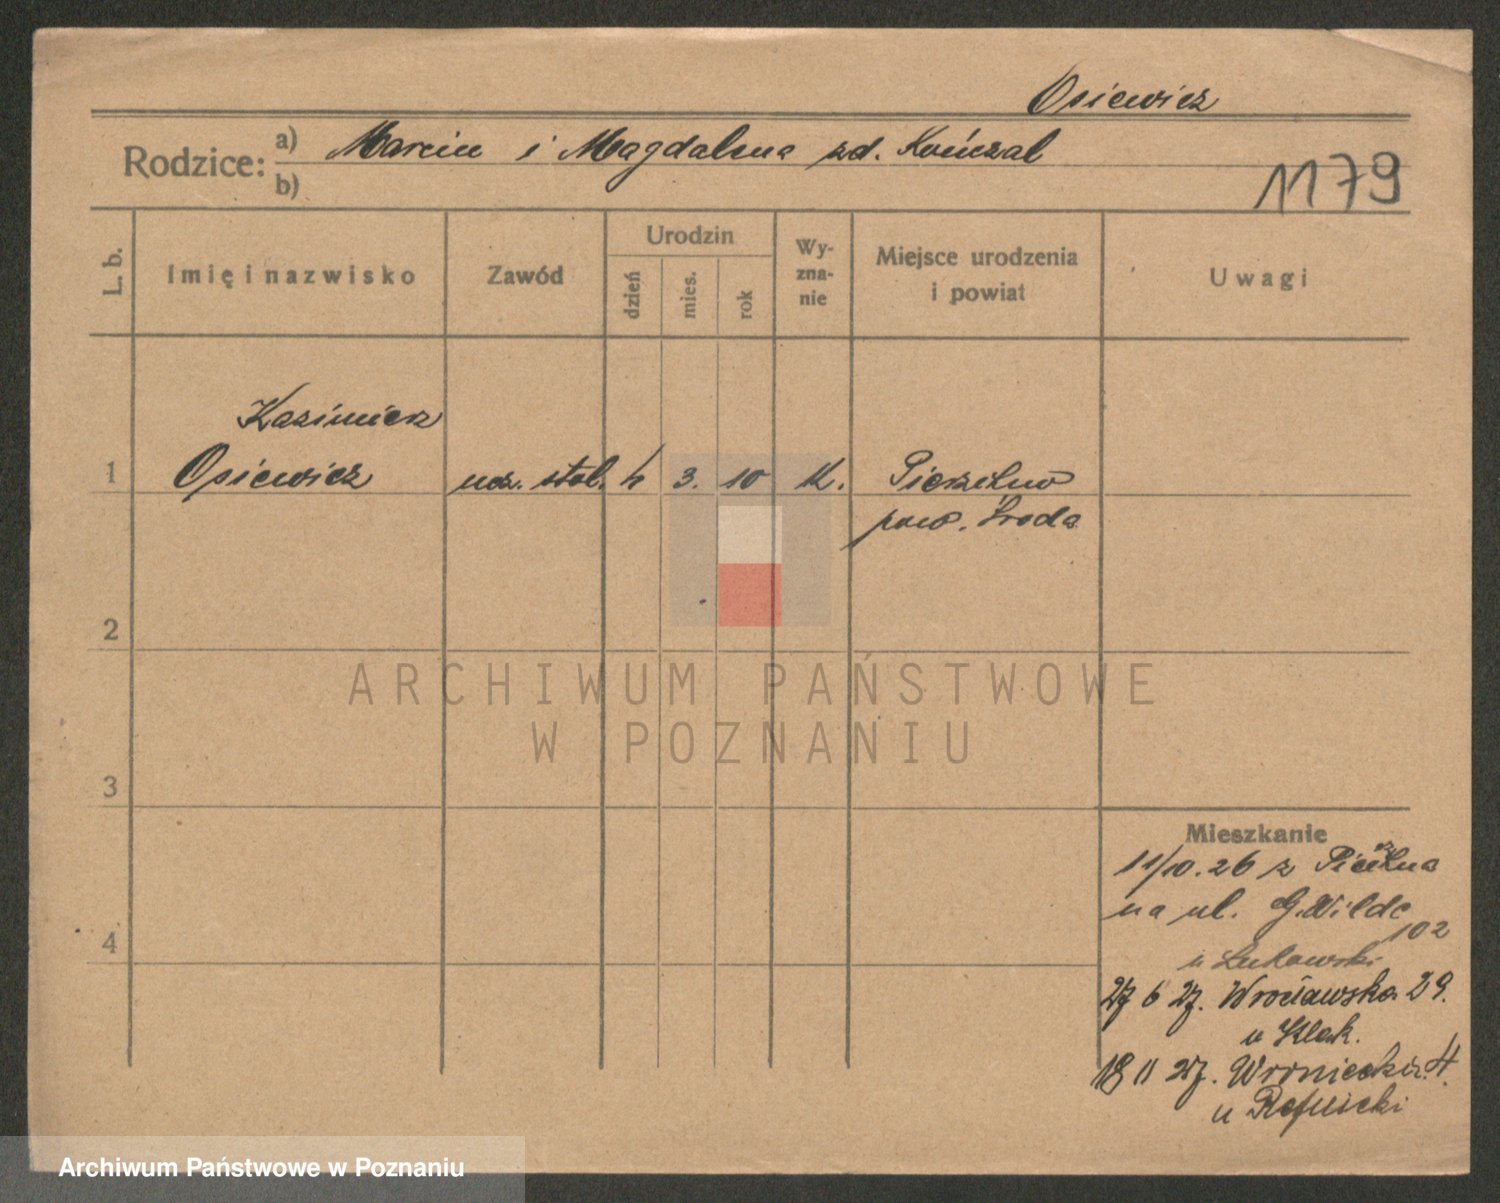 Osiewicz
Rodzice: a) Marcin i Magdalena zd. Kończal
b)
1179
L. b.
Imię i nazwisko
Zawód
Urodzin
dzień
mies.
rok
Wy-
zna-
nie
Miejsce urodzenia
i powiat
Uwagi
Kazimierz
1 Osiewicz ucz. stol. 4 3. 10 K.
pow. Środa
2
3
4
ARCHIWUM PAŃSTWOWE
W POZNANIU
Mieszkanie
11/10.26 z
na ul. G. Wilde
102
u Łukowski
27 6 27. Wrocławska 29.
u Klak.
18 11 27. Wroniecka 4.
u
Archiwum Państwowe w Poznaniu